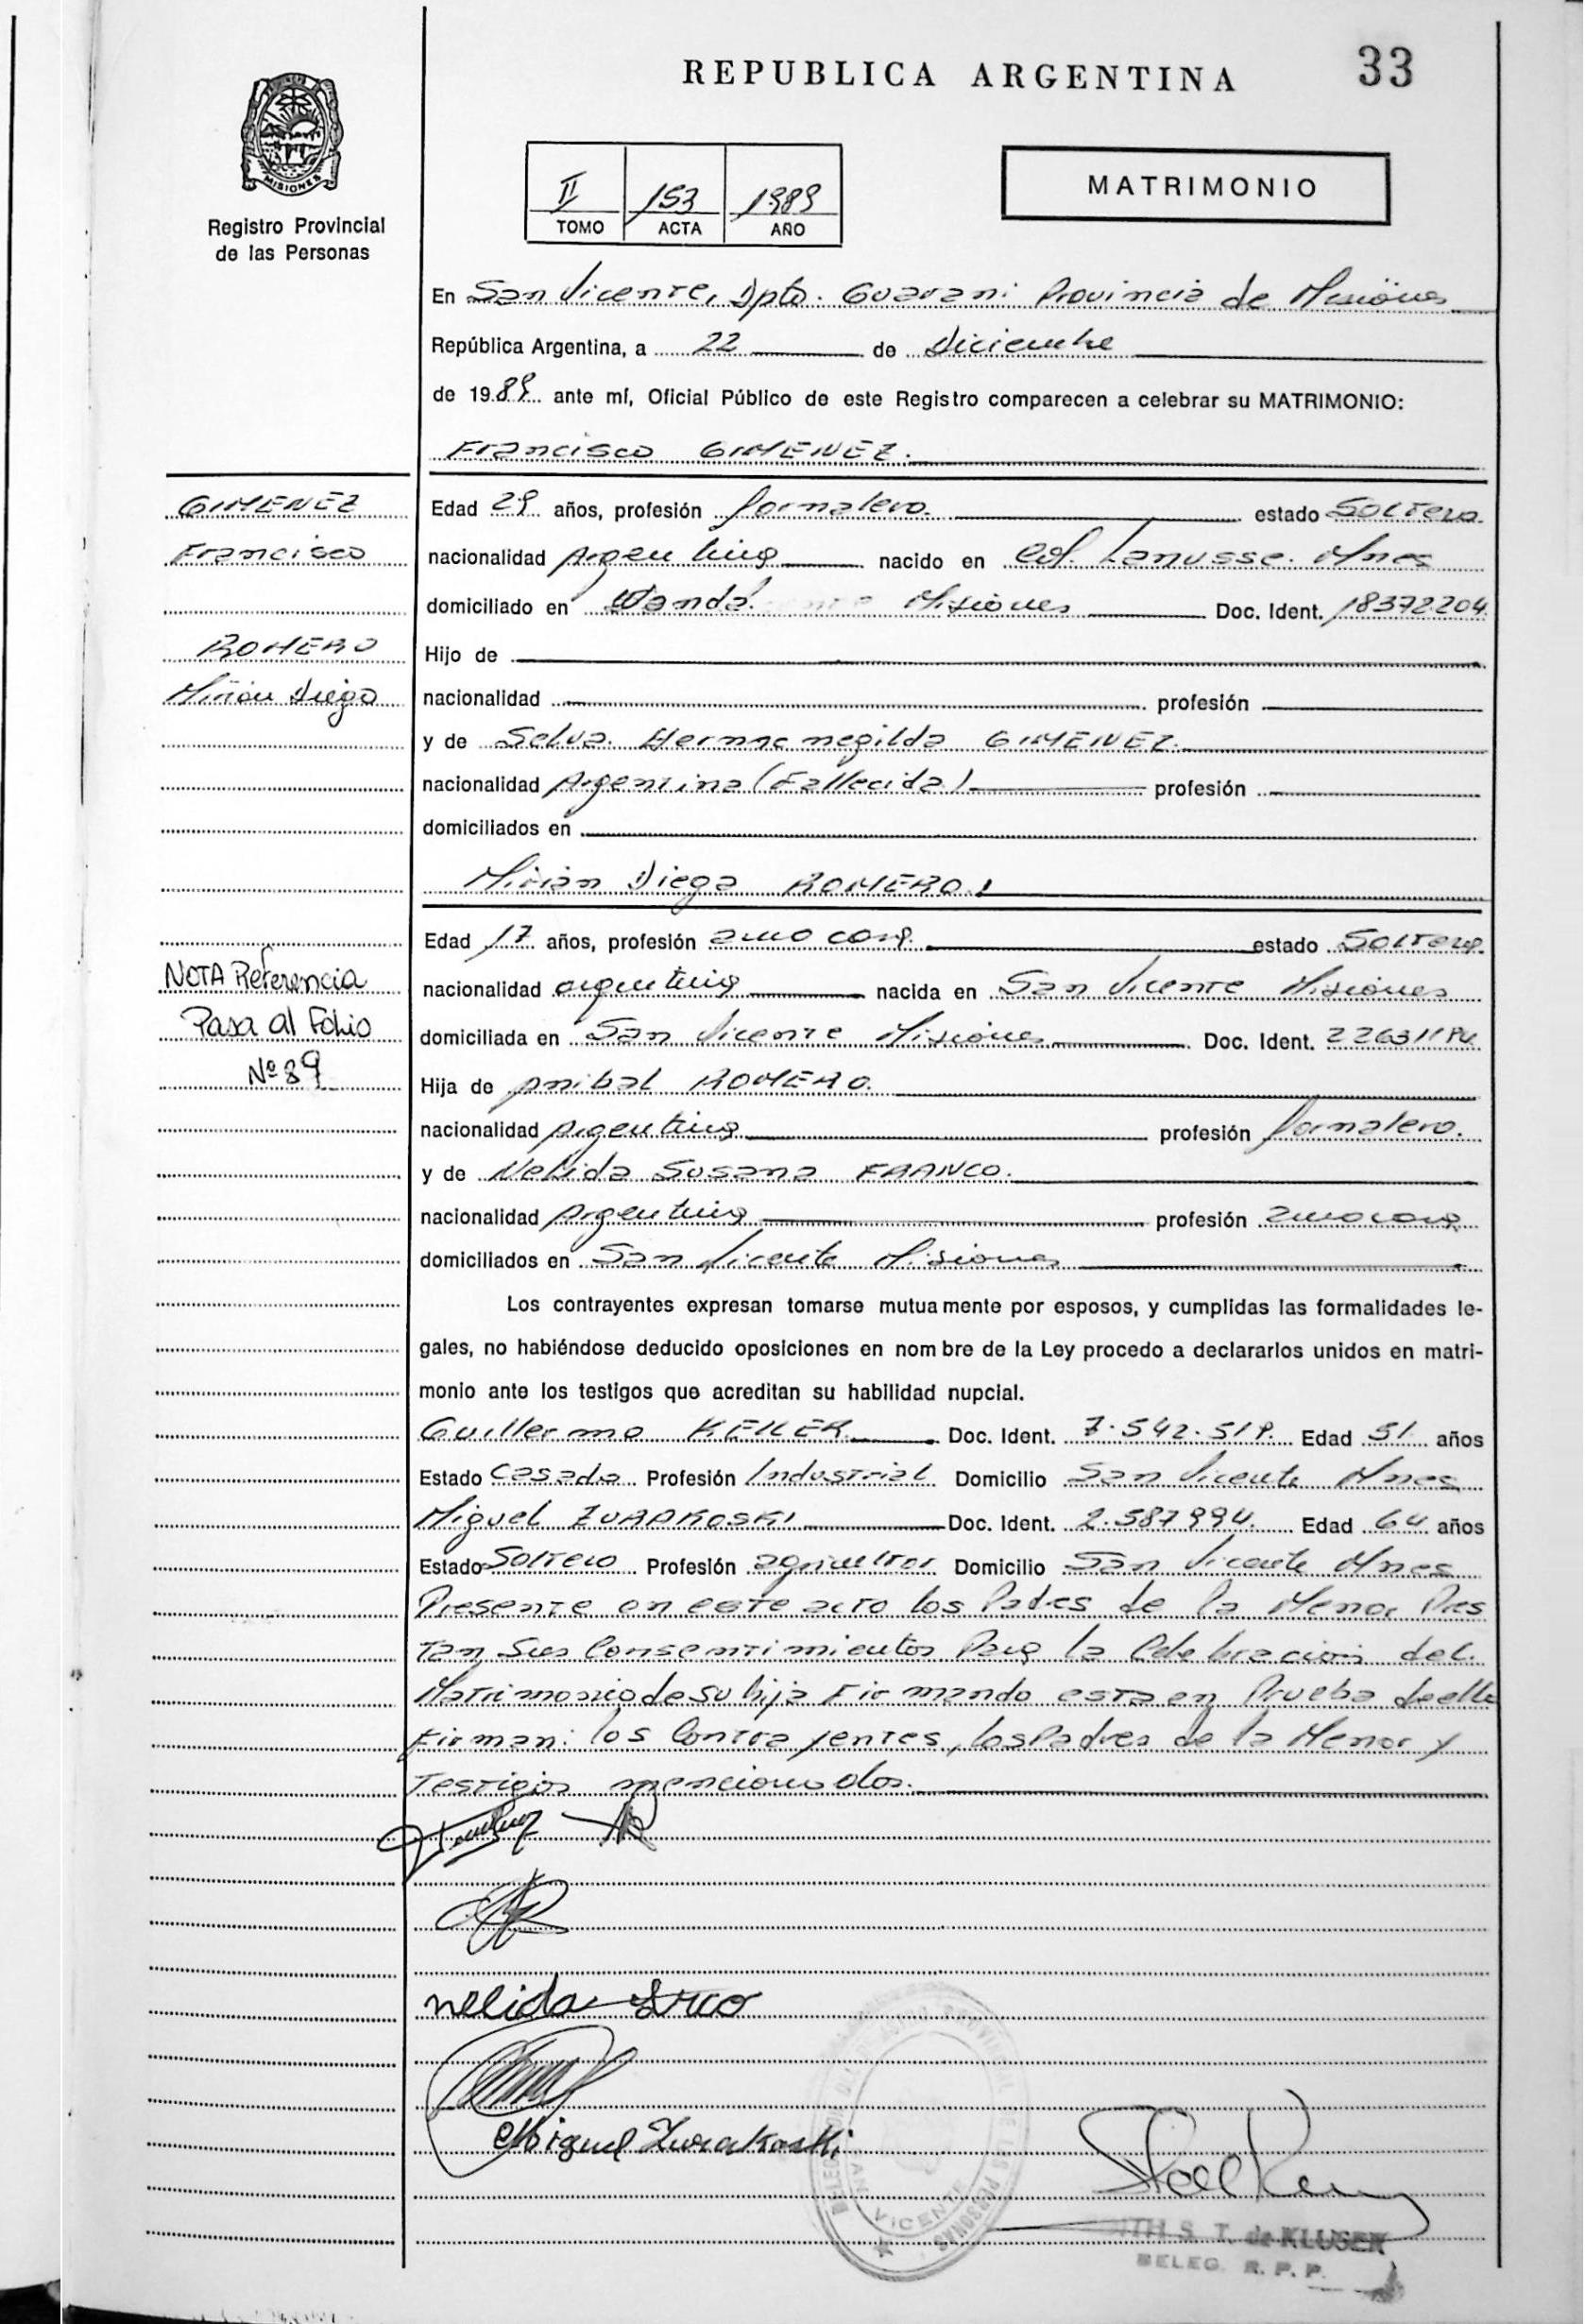 REPUBLICA ARGENTINA
33
MISIONES
Registro Provincial
de las Personas
II 153 1989
TOMO ACTA AÑO
MATRIMONIO
En San Vicente, Dpto. Guarani Provincia de Misiones
República Argentina, a 22 de Diciembre
de 1989 ante mí, Oficial Público de este Registro comparecen a celebrar su MATRIMONIO:
Francisco GIMENEZ.
GIMENEZ
Francisco
ROMERO
Mirian Diega
Edad 29 años, profesión Jornalero. estado Soltero.
nacionalidad Argentina nacido en Col. Lanusse. Mnes
domiciliado en Wanda. Misiones Doc. Ident. 18372204
Hijo de
nacionalidad profesión
y de Selva Hermenegilda GIMENEZ.
nacionalidad Argentina (Fallecida) profesión
domiciliados en
Mirian Diega ROMERO.
NOTA Referencia
Pasa al Folio
Nº 89
Edad 17 años, profesión ama casa. estado Soltera.
nacionalidad argentina nacida en San Vicente Misiones
domiciliada en San Vicente Misiones Doc. Ident.
Hija de Anibal ROMERO.
nacionalidad Argentina profesión Jornalero.
y de Nelida Susana FRANCO.
nacionalidad Argentina profesión ama casa
domiciliados en San Vicente Misiones
Los contrayentes expresan tomarse mutuamente por esposos, y cumplidas las formalidades le-
gales, no habiéndose deducido oposiciones en nombre de la Ley procedo a declararlos unidos en matri-
monio ante los testigos que acreditan su habilidad nupcial.
Guillermo KELER Doc. Ident. 7.542.519. Edad 51 años
Estado Casado Profesión Industrial Domicilio San Vicente Mnes
Miguel ZURAKOSKI Doc. Ident. 2.587994. Edad 64 años
Estado Soltero Profesión agricultor Domicilio San Vicente Mnes
Presente en este acto los Padres de la Menor Pres
tan sus Consentimientos Para la Celebracion del
Matrimonio de su hija Firmando esta en Prueba de ello
Firman: los Contrayentes, los Padres de la Menor y
Testigos mencionados.
nelida
Miguel Zurakoski
VICENTE
S. T. de KLUGER
DELEG. R. P. P.